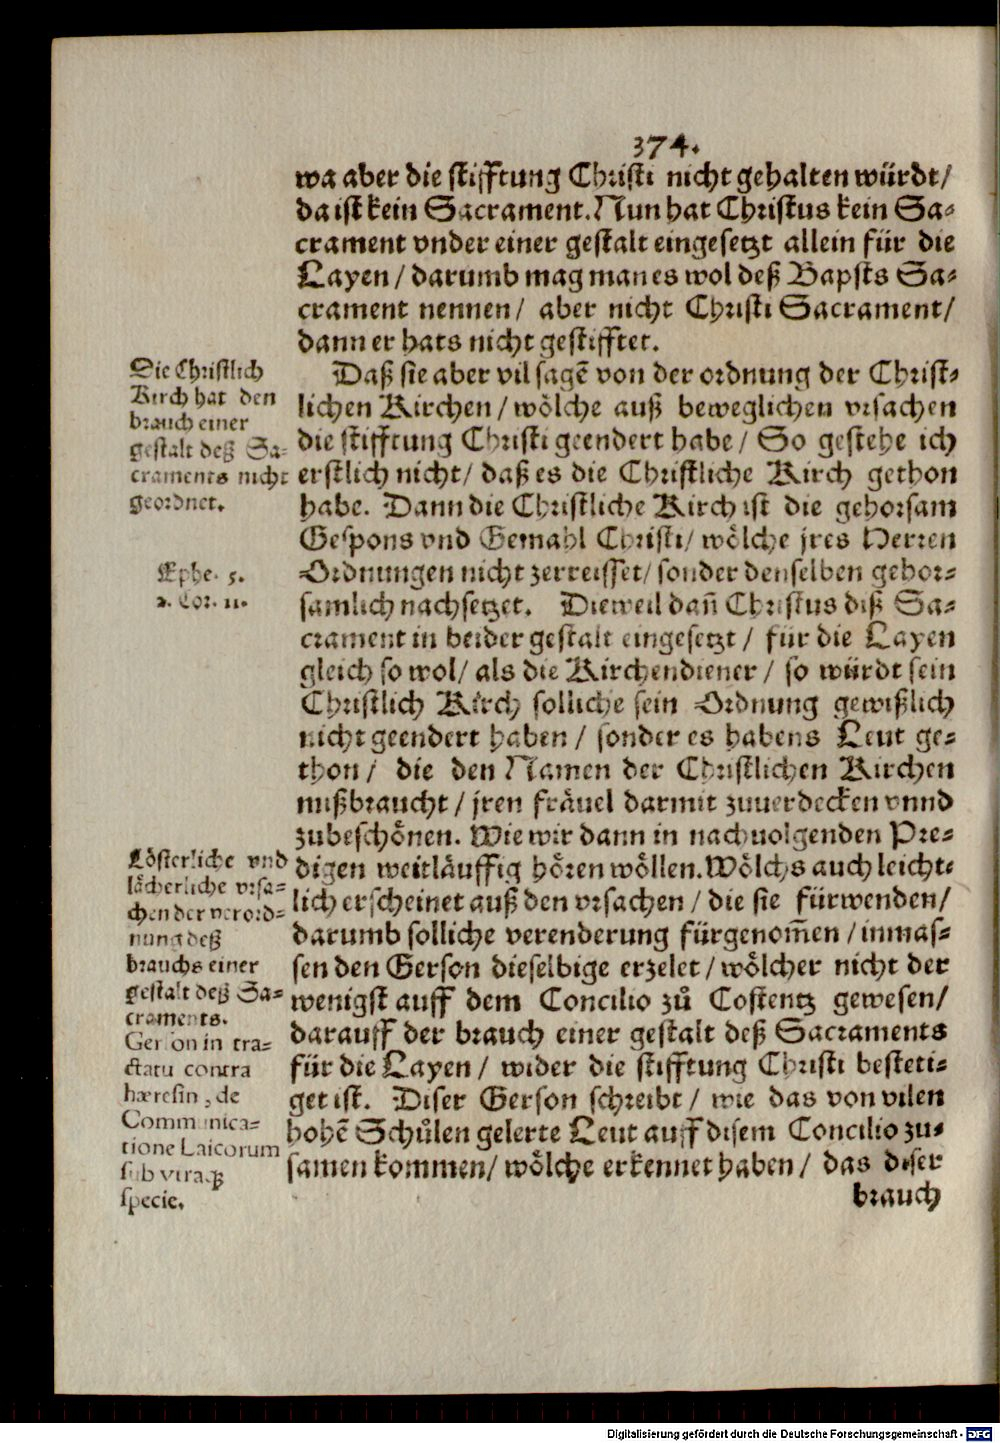 374.
wa aber die stifftung Christi nicht gehalten würdt/
da ist kein Sacrament. Nun hat Christus kein Sa-
crament vnder einer gestalt eingesetzt allein für die
Layen/ darumb mag man es wol deß Bapsts Sa-
crament nennen/ aber nicht Christi Sacrament/
dann er hats nicht gestifftet.
Daß sie aber vil sagē von der ordnung der Christ-
lichen Kirchen/ wölche auß beweglichen vrsachen
die stifftung Christi geendert habe/ So gestehe ich
erstlich nicht/ daß es die Christliche Kirch gethon
habe. Dann die Christliche Kirch ist die gehorsam
Gespons vnd Gemahl Christi/ wölche jres Herren
Ordnungen nicht zerreisset/ sonder denselben gehor-
samlich nachsetzet. Dieweil dañ Christus diß Sa-
crament in beider gestalt eingesetzt/ für die Layen
gleich so wol/ als die Kirchendiener/ so würdt sein
Christlich Kirch solliche sein Ordnung gewißlich
nicht geendert haben/ sonder es habens Leut ge-
thon/ die den Namen der Christlichen Kirchen
mißbraucht/ jren fräuel darmit zuuerdecken vnnd
zubeschönen. Wie wir dann in nachuolgenden Pre-
digen weitläuffig hören wöllen. Wölchs auch leicht-
lich erscheinet auß den vrsachen/ die sie fürwenden/
darumb solliche verenderung fürgenom̄en/ inmas-
sen den Gerson dieselbige erzelet/ wölcher nicht der
wenigst auff dem Concilio zů Costentz gewesen/
darauff der brauch einer gestalt deß Sacraments
für die Layen/ wider die stifftung Christi besteti-
get ist. Diser Gerson schreibt/ wie das von vilen
hohē Schůlen gelerte Leut auff disem Concilio zu-
samen kommen/ wölche erkennet haben/ das diser
brauch
Die Christlich
Kirch hat den
brauch einer
gestalt deß Sa-
craments nicht
geordnet.
Ephe. 5.
2. Cor. 11.
Lösterliche vnd
lächerliche vrsa-
chen der verord-
nung deß
brauchs einer
gestalt deß Sa-
craments.
Gerson in tra-
ctatu contra
hæresin, de
Communica-
tione Laicorum
sub vtraq́;
specie.
Digitalisierung gefördert durch die Deutsche Forschungsgemeinschaft - DFG